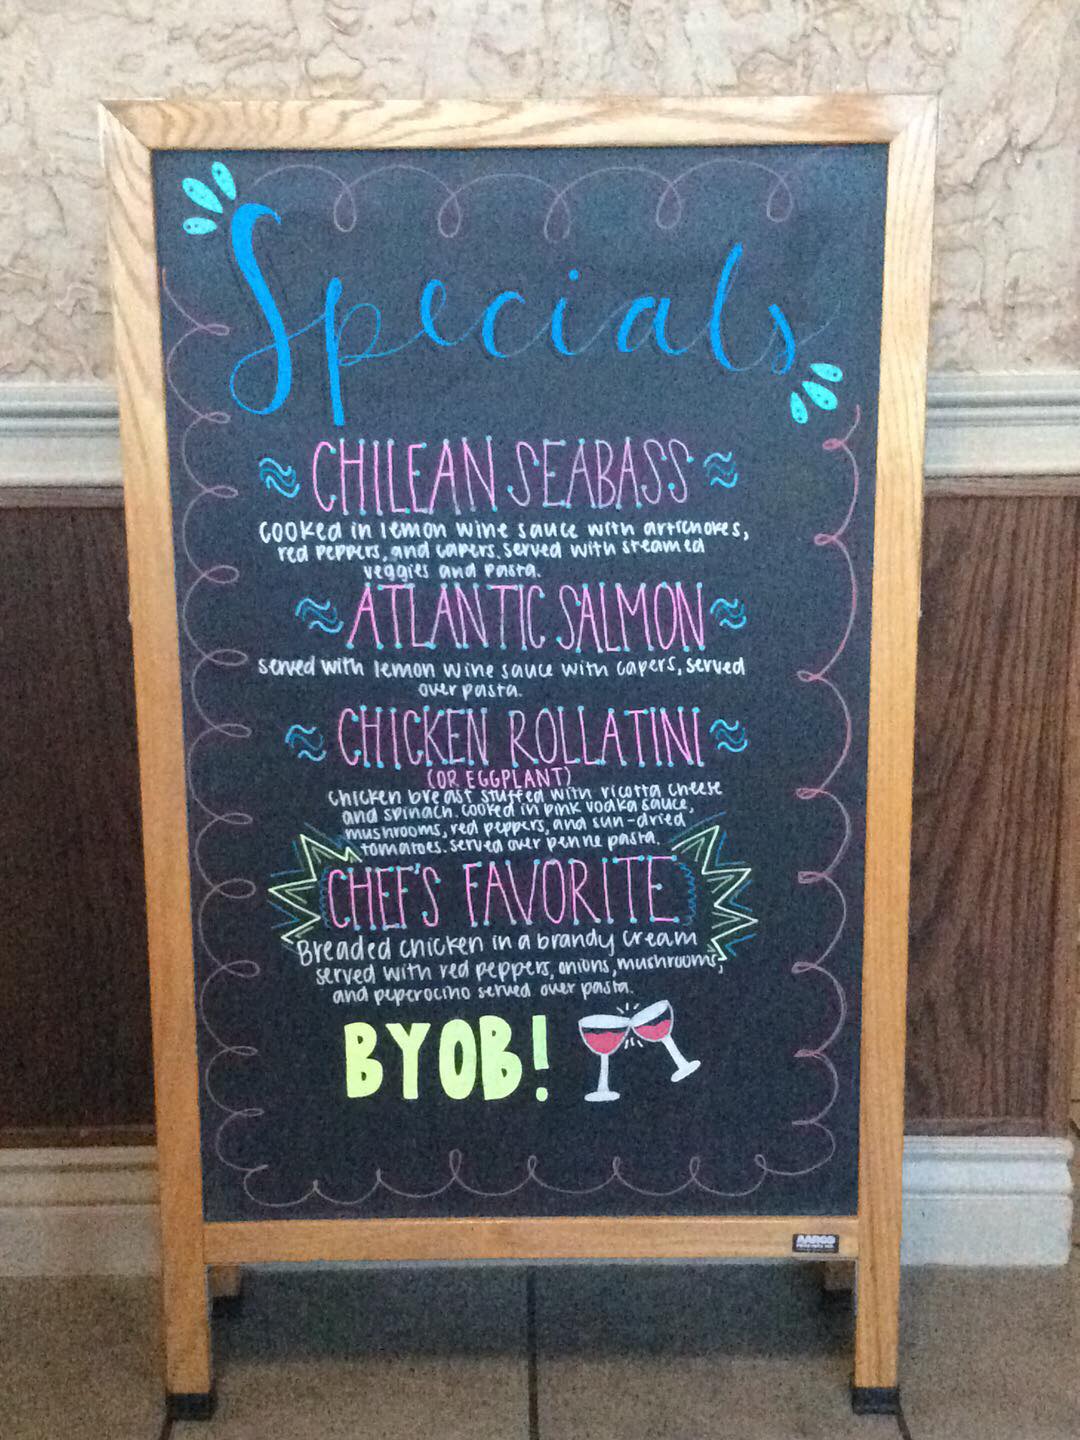 Specials
CHILEAN SEABASS
cooked in lemon wine sauce with artichokes,
red peppers, and capers. Served with steamed
veggies and pasta.
ATLANTIC SALMON
served with lemon wine sauce with capers, served
over pasta.
CHICKEN ROLLATINI
(OR EGGPLANT)
chicken breast stuffed with ricotta cheese
and spinach. cooked in pink vodka sauce,
mushrooms, red peppers, and sun-dried
tomatoes. served over penne pasta.
CHEF'S FAVORITE
Breaded chicken in a brandy cream
served with red peppers, onions, mushrooms,
and peperocino served over pasta.
BYOB!
AARCO